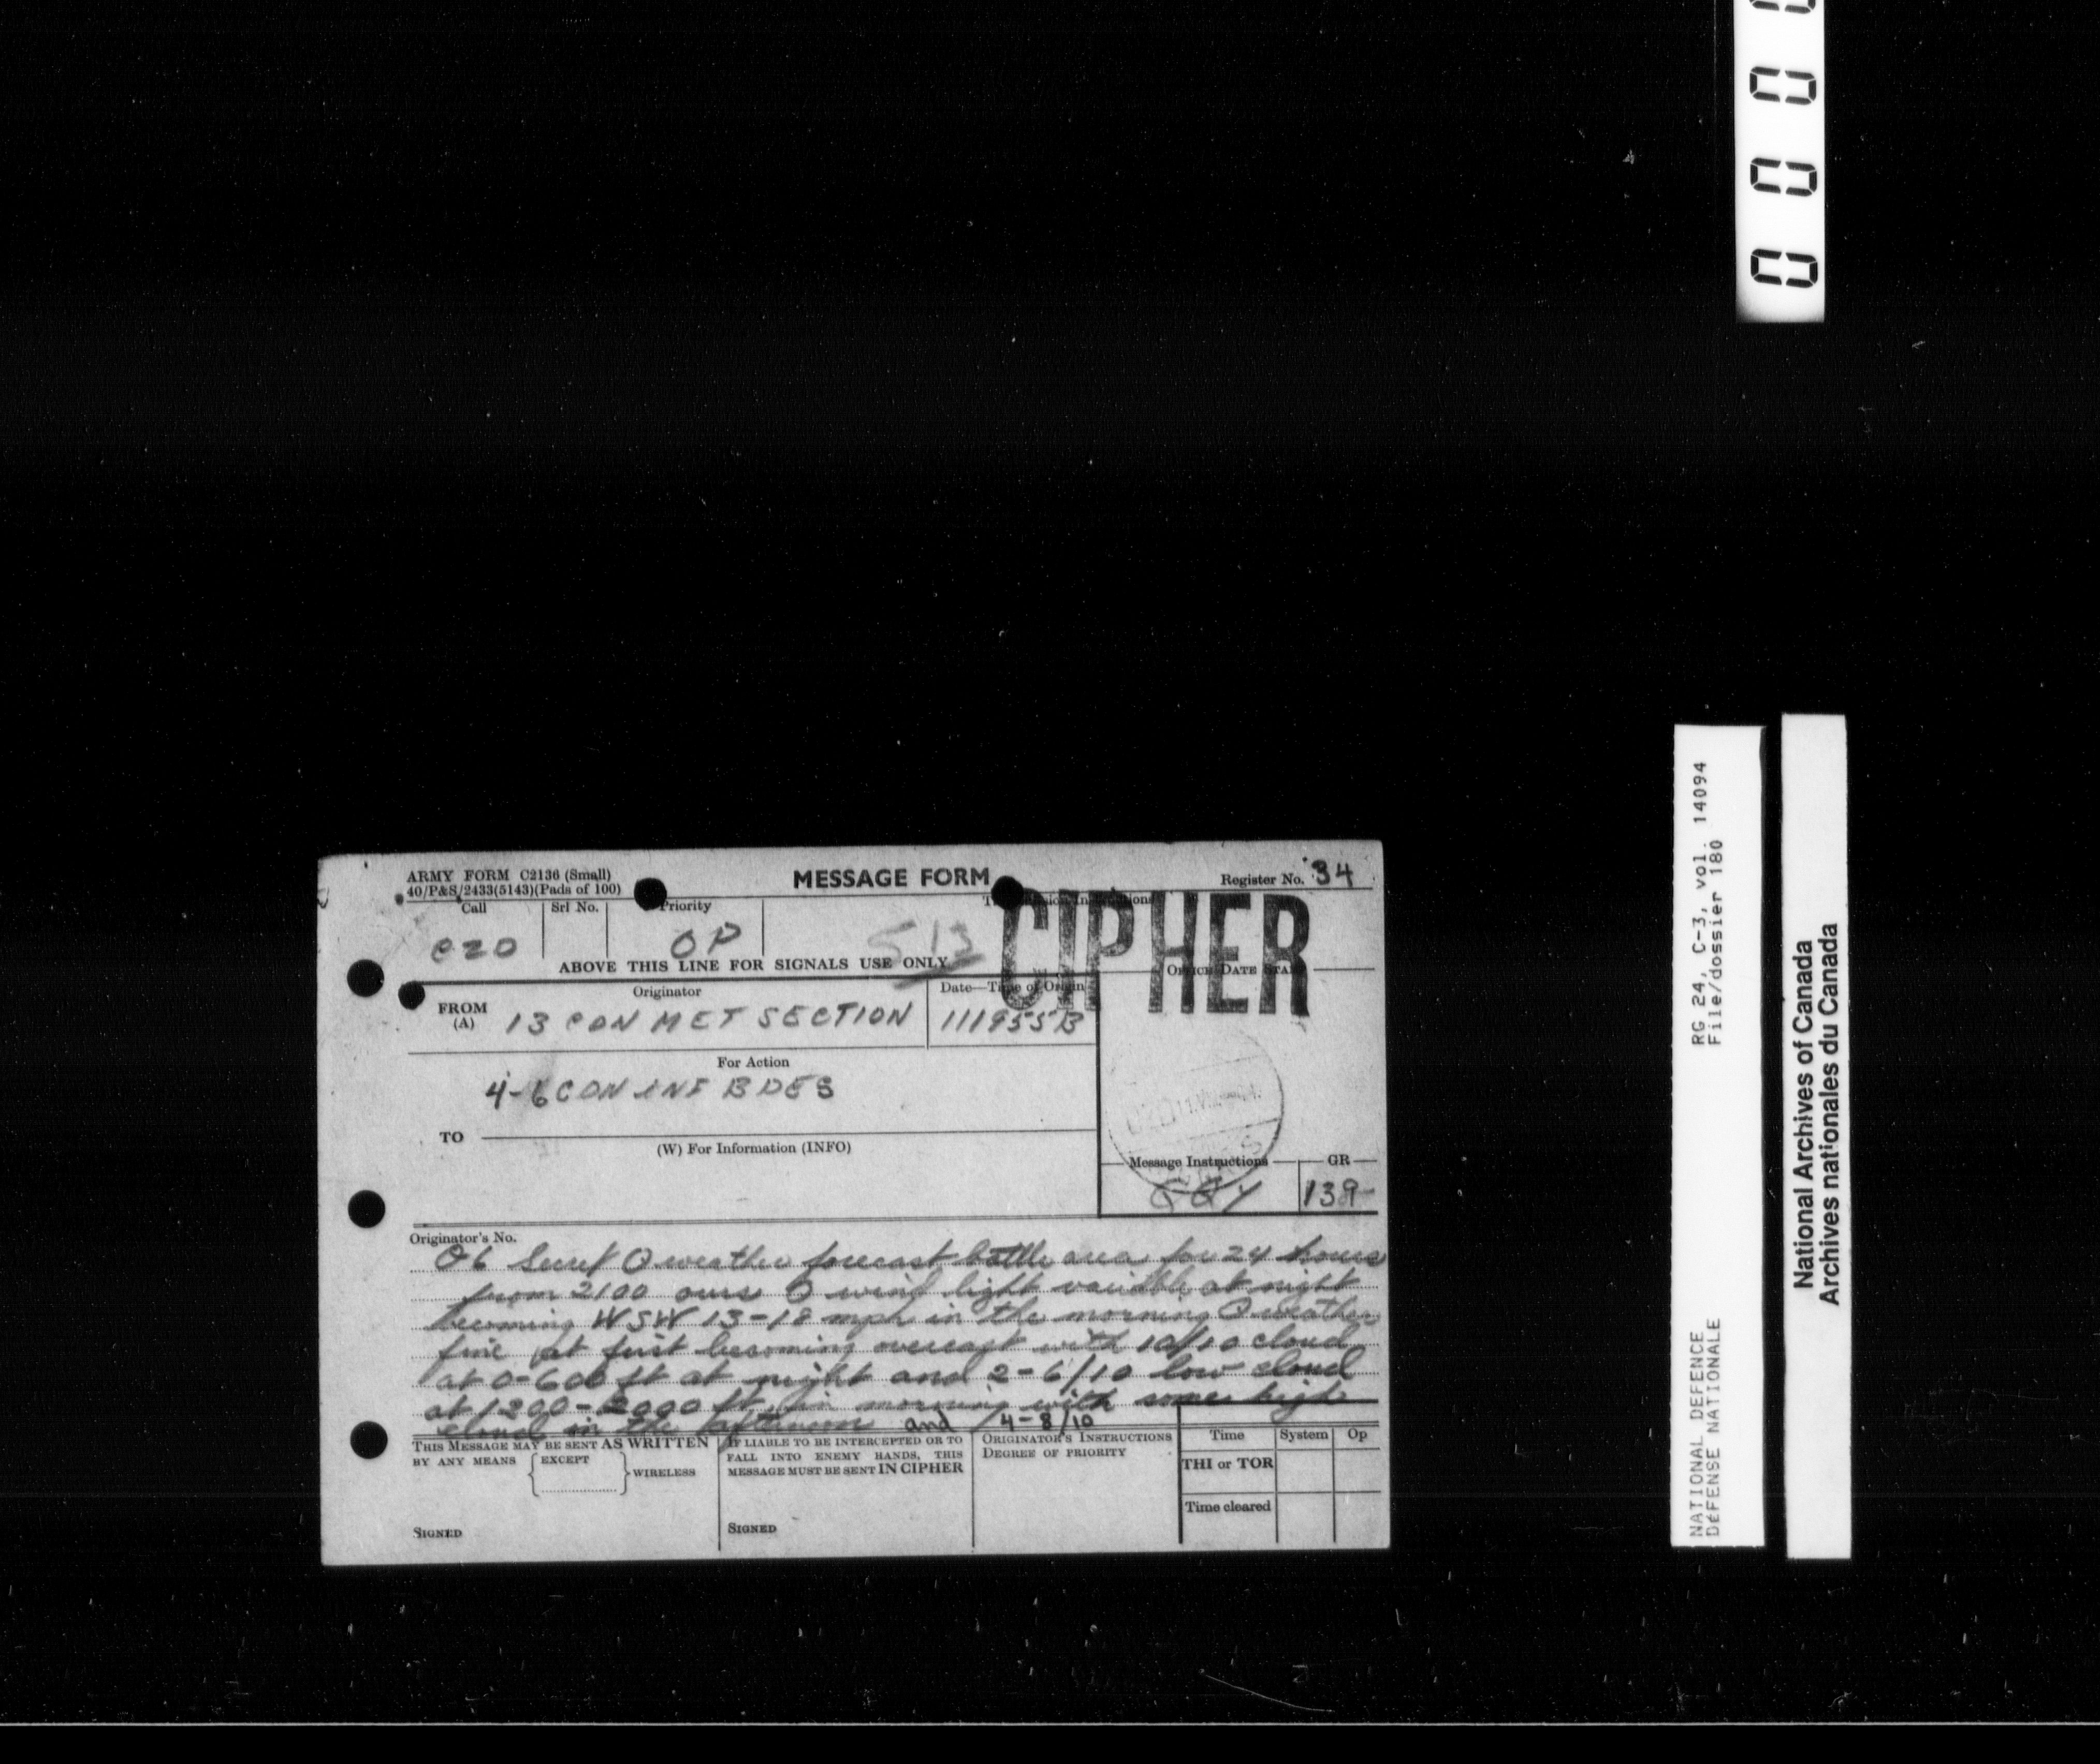 0 0 0 0
ARMY FORM C2136 (Small)
40/P&S/2433(5143)(Pads of 100)
MESSAGE FORM
Register No. 34
Call
Srl No.
Priority
CIPHER
OP
513
ABOVE THIS LINE FOR SIGNALS USE ONLY
OFFICE DATE STAMP
Originator
Date—Time of Origin
FROM
(A)
13 CDN MET SECTION
111955B
For Action
4-6 CDN INF BDES
TO
(W) For Information (INFO)
Message Instructions
GR
139
Originator's No.
O6 Secret O weather forecast battle area for 24 hours
from 2100 ours O wind light variable at night
becoming WSW 13-18 mph in the morning O weather
fine at first becoming overcast with 10/10 cloud
at 0-600 ft at night and 2-6/10 low cloud
at 1200-2000 ft in morning with some high
cloud in the afternoon and 4-8/10
THIS MESSAGE MAY BE SENT AS WRITTEN
BY ANY MEANS
EXCEPT
WIRELESS
SIGNED
IF LIABLE TO BE INTERCEPTED OR TO
FALL INTO ENEMY HANDS, THIS
MESSAGE MUST BE SENT IN CIPHER
SIGNED
ORIGINATOR'S INSTRUCTIONS
DEGREE OF PRIORITY
Time
System
Op
THI or TOR
Time cleared
RG 24, C-3, vol. 14094
File/dossier 180
NATIONAL DEFENCE
DÉFENSE NATIONALE
National Archives of Canada
Archives nationales du Canada